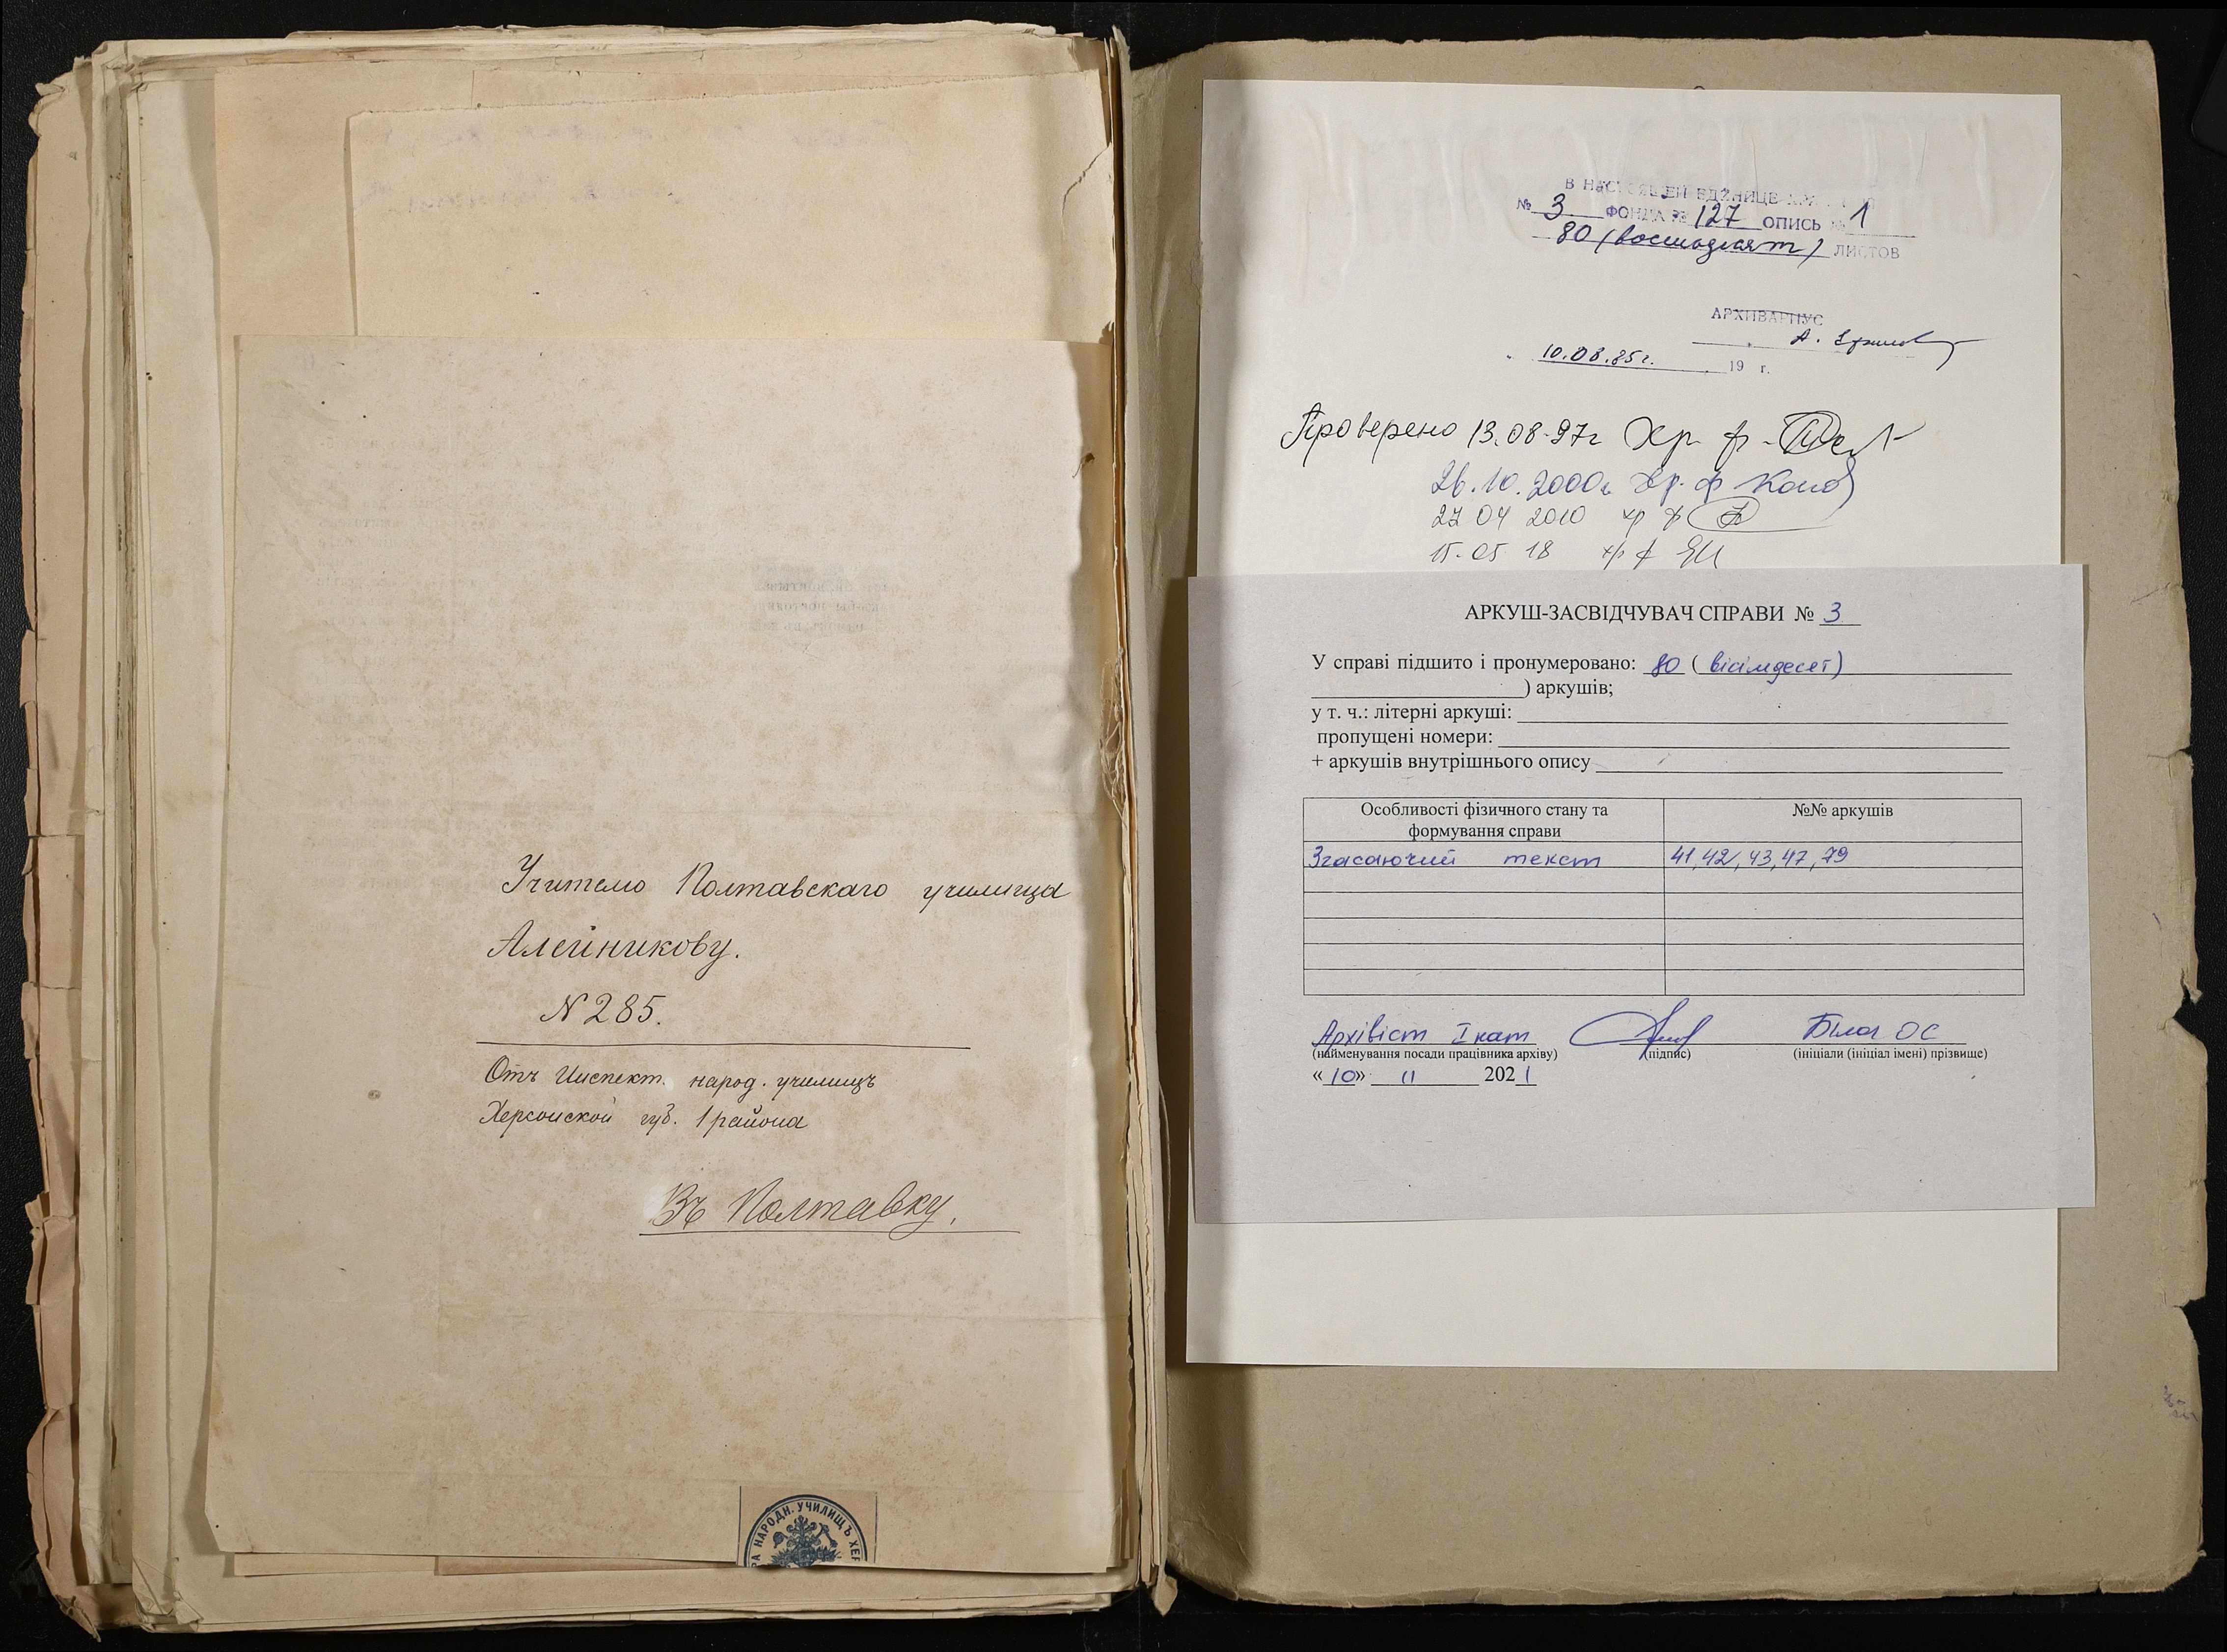 Учителю Полтавскаго училища
Алейникову.
N 285.
Отъ Инспект. народ. училищъ
Херсонской губ. 1 района
Въ Полтавку.
РА НАРОДН. УЧИЛИЩЪ ХЕР
В НАСТОЯЩЕЙ ЕДИНИЦЕ
№ 3 ФОНДА № 127 ОПИСЬ № 1
80 (восемьдесят) ЛИСТОВ
АРХИВАРИУС
А.
10.08.85г. 19 г.
Проверено 13.08.97г Хр. ф.
26.10.2000г. Хр. ф
27 04 2010 хр ф
15.05 18 хр ф
АРКУШ-ЗАСВІДЧУВАЧ СПРАВИ № 3
У справі підшито і пронумеровано: 80 ( вісімдесят)
) аркушів;
у т. ч.: літерні аркуші:
пропущені номери:
+ аркушів внутрішнього опису
Особливості фізичного стану та формування справи №№ аркушів
Згасаючий текст 41, 42, 43, 47, 79
Архівіст І кат Біла ОС
(найменування посади працівника архіву) (підпис) (ініціали (ініціал імені) прізвище)
«10» 11 2021